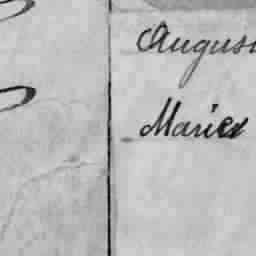 Augus
Maries